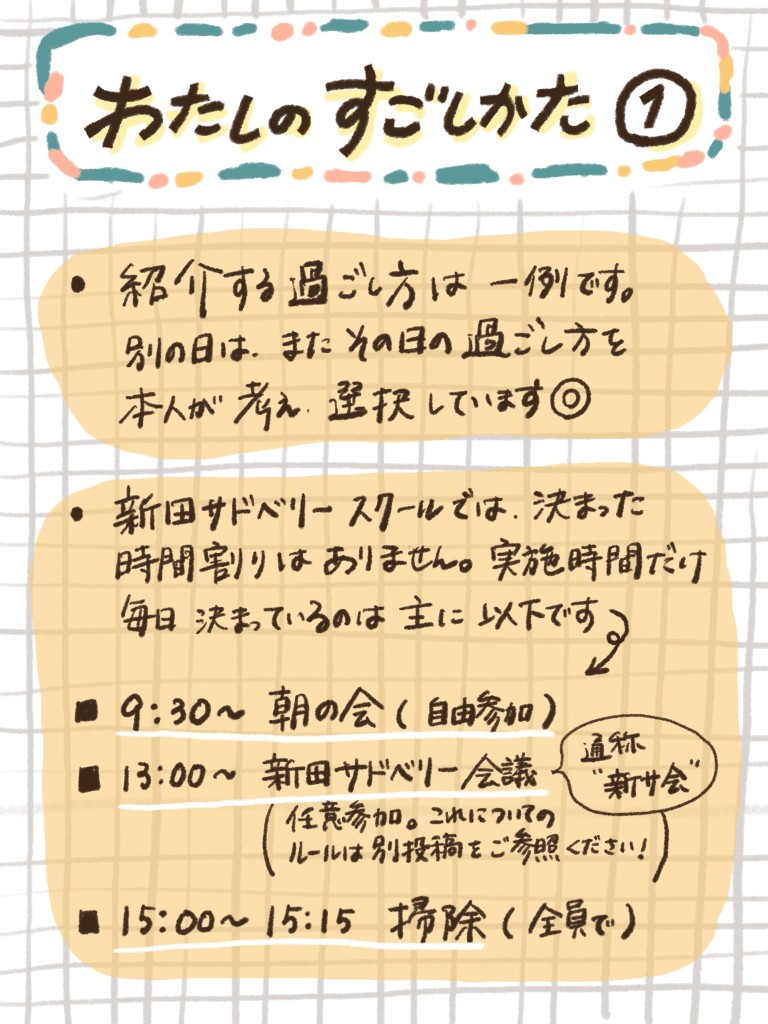 わたしの すごしかた ①
• 紹介する過ごし方は 一例です。
別の日は、また その日の過ごし方を
本人が 考え、選択しています◎
• 新田サドベリースクールでは、決まった
時間割りは ありません。実施時間だけ
毎日 決まっているのは 主に 以下です
■ 9:30〜 朝の会 (自由参加)
■ 13:00〜 新田サドベリー会議
通称
"新サ会"
(任意参加。これについての
ルールは 別投稿をご参照ください!)
■ 15:00〜15:15 掃除 (全員で)